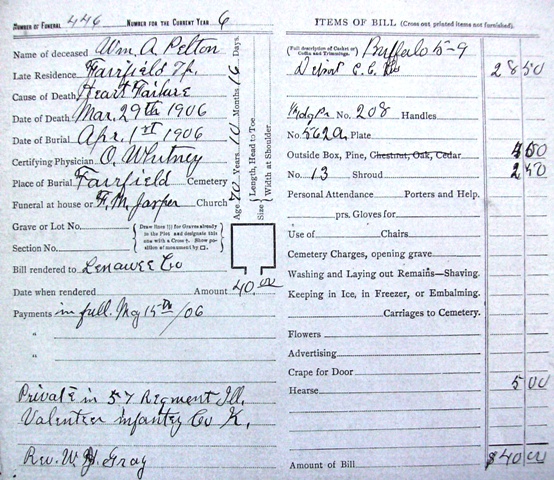 NUMBER OF FUNERAL 446 NUMBER FOR THE CURRENT YEAR 6
Name of deceased Wm. A Pelton
Late Residence Fairfield Tp.
Cause of Death Heart Failure
Date of Death Mar. 29th 1906
Date of Burial Apr. 1st 1906
Certifying Physician O. Whitney
Place of Burial Fairfield Cemetery
Funeral at house of F. M. Jasper Church
Grave or Lot No.
Section No.
Draw lines ||| for Graves already in the Plot and designate this one with a Cross †. Show position of monument by □.
Bill rendered to Lenawee Co
Date when rendered Amount 40.00
Payments in full. May 15th /06
"
"
Private in 57 Regment Ill.
Valenteer infantey Co K.
Rev. W. Gray
Age 70 Years, 10 Months, 16 Days.
Size Length, Head to Toe
Width at Shoulder
ITEMS OF BILL (Cross out printed items not furnished).
(Full description of Casket or Coffin and Trimmings) Buffalo 5-9
Detroit C. C. 28 50
No. 208 Handles
No. 562a Plate
Outside Box, Pine, Chestnut, Oak, Cedar 4 00
No. 13 Shroud 2 50
Personal Attendance Porters and Help.
prs. Gloves for
Use of Chairs
Cemetery Charges, opening grave
Washing and Laying out Remains—Shaving.
Keeping in Ice, in Freezer, or Embalming.
Carriages to Cemetery.
Flowers
Advertising
Crape for Door
Hearse 5 00
Amount of Bill $40 00